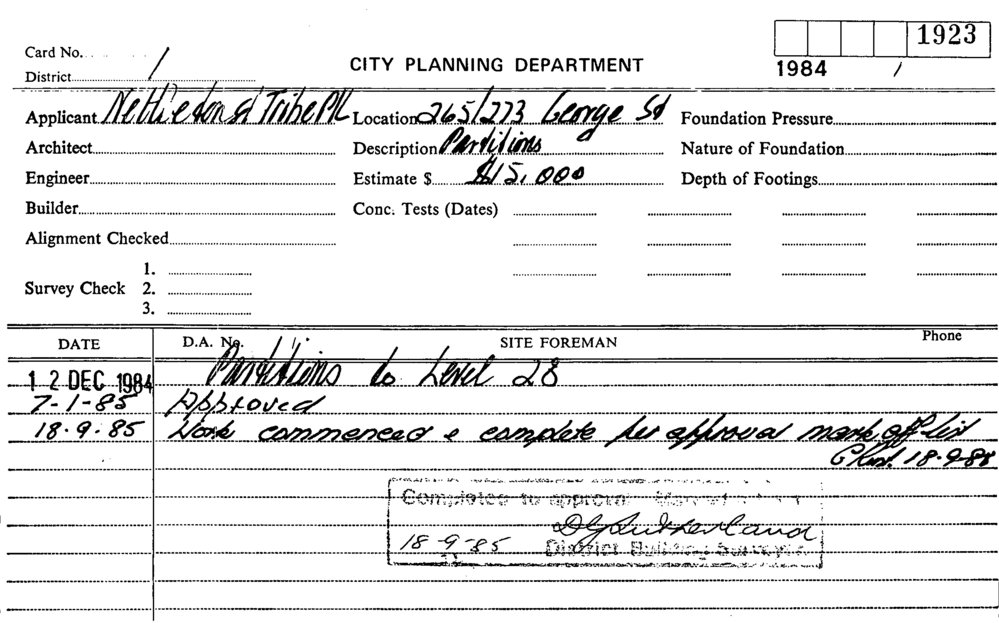 Card No.
1923
District
CITY PLANNING DEPARTMENT
1984 /
Applicant Nettleton & Tribe P/L Location 265/273 George St Foundation Pressure
Architect Description Partitions Nature of Foundation
Engineer Estimate $ $15,000 Depth of Footings
Builder Conc. Tests (Dates)
Alignment Checked
1.
Survey Check 2.
3.
DATE D.A. No. SITE FOREMAN Phone
12 DEC 1984 Partitions to Level 28
7-1-85 Approved
18.9.85 Work commenced & complete per approval mark off list
18-9-85
Completed to approval
DG Sutherland
18-9-85 District Building Surveyor